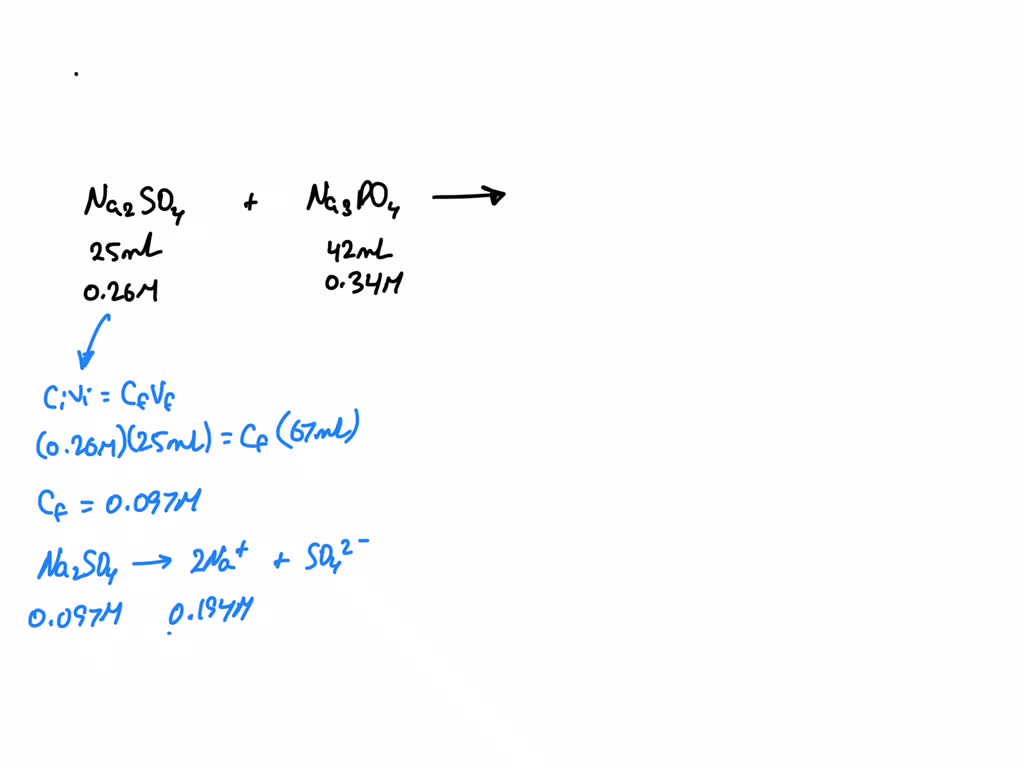 Na₂SO₄ + Na₃PO₄ →
25mL 42mL
0.26M 0.34M
CᵢVᵢ = C_fV_f
(0.26M)(25mL) = C_f (67mL)
C_f = 0.097M
Na₂SO₄ → 2Na⁺ + SO₄²⁻
0.097M 0.194M